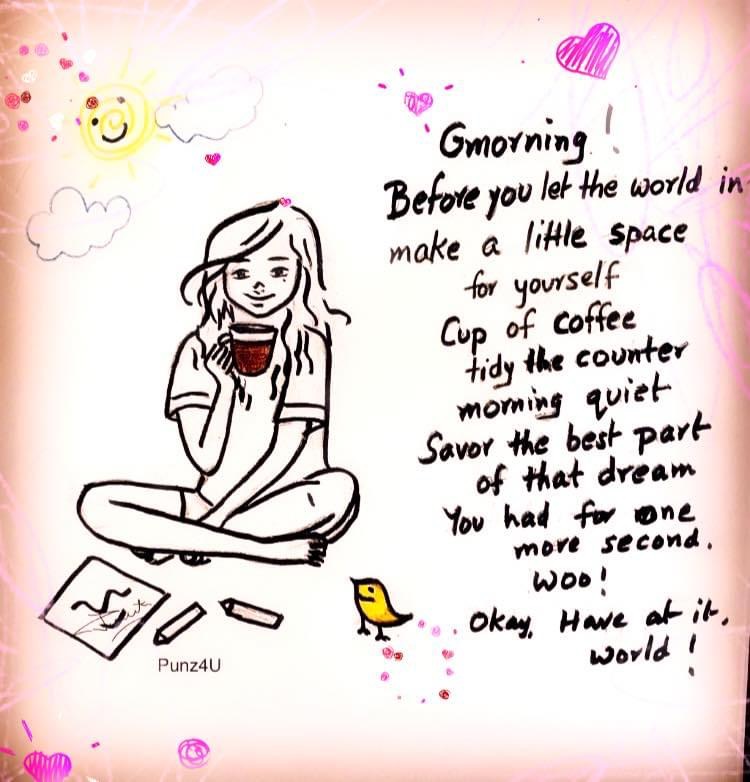 Gmorning !
Before you let the world in
make a little space
for yourself
Cup of coffee
tidy the counter
morning quiet
Savor the best part
of that dream
You had for one
more second.
Woo!
Okay, Have at it,
world !
Punz4U